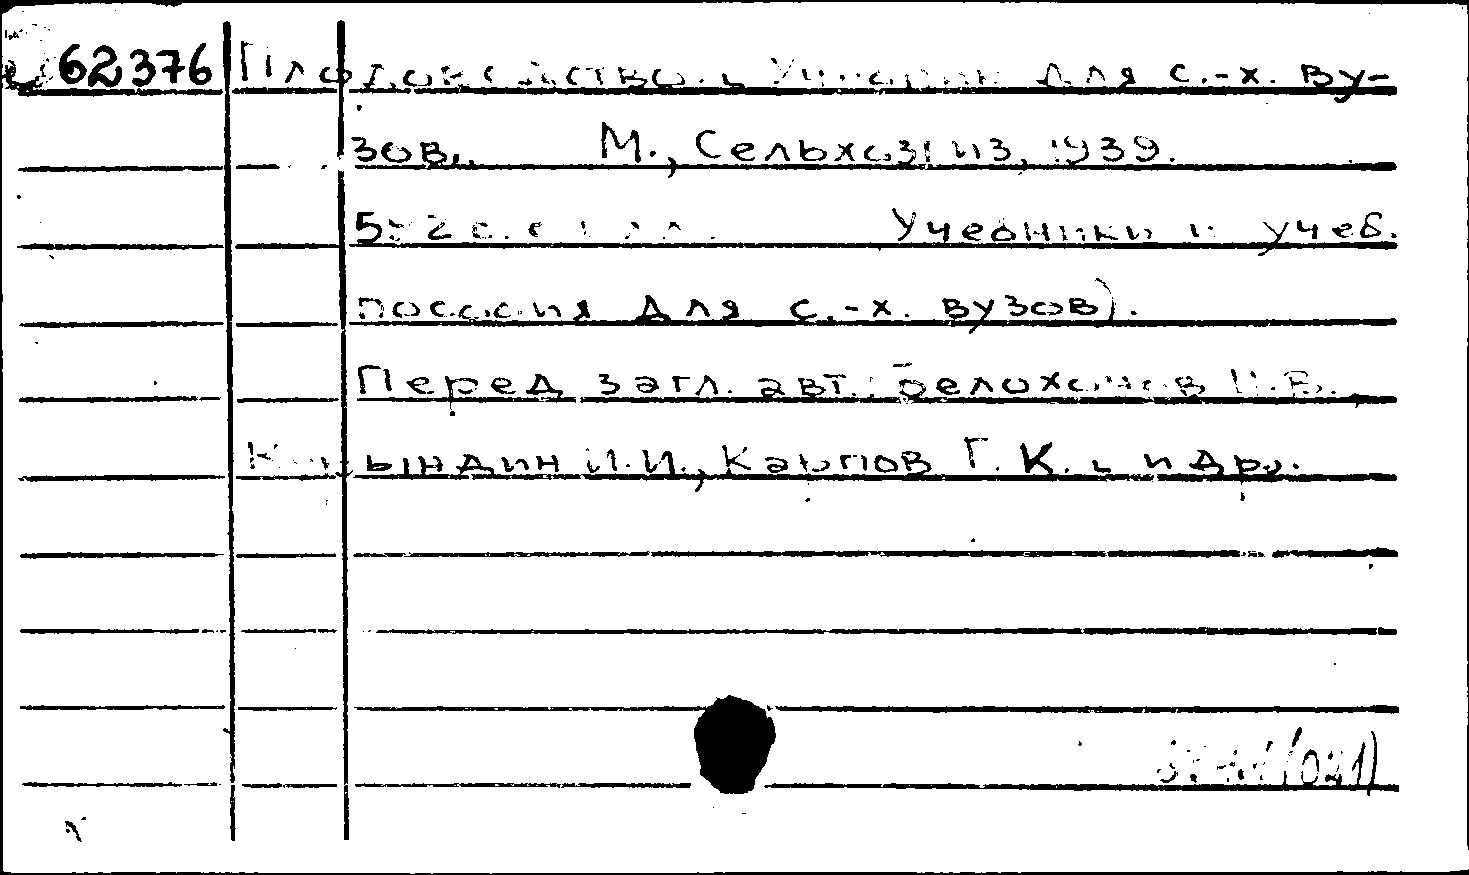 62376 Плодоводство. Учебник для с.-х. ву-
зов. М., Сельхозгиз, 1939.
с. Учебники и учеб.
пособия для с.-х. вузов).
Перед загл. авт.: Белохонов И.В.,
И.И., Карпов Г.К. и др.